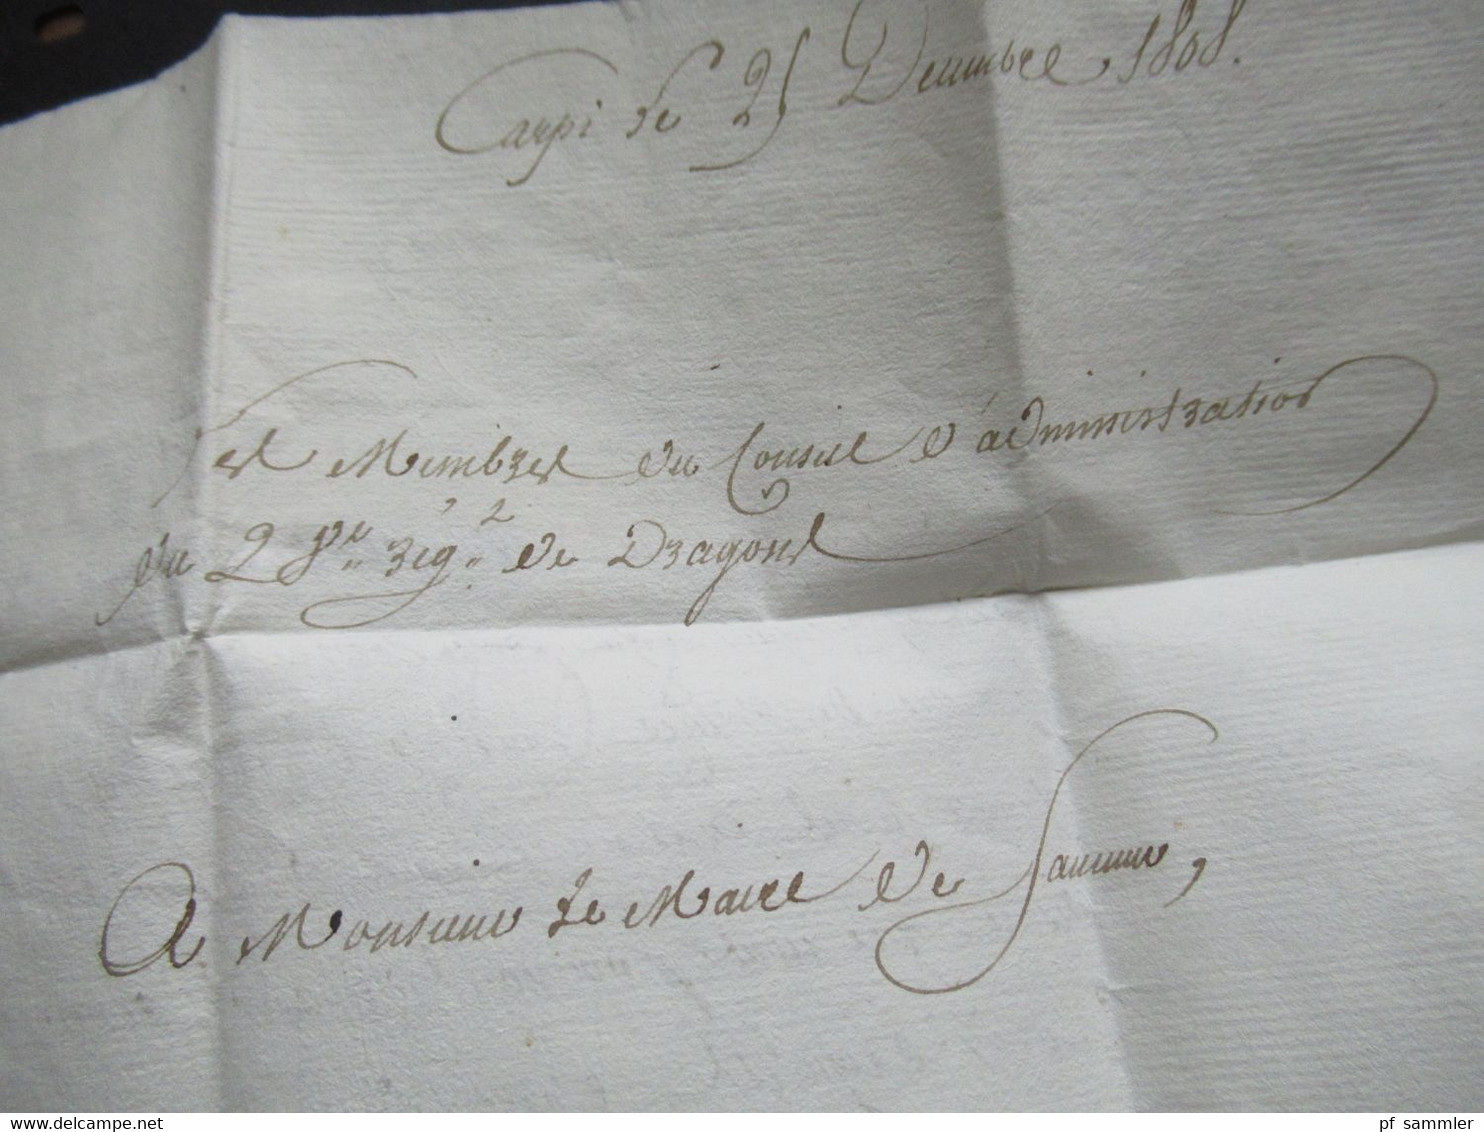 Carpi le 25 Decembre 1808.
Les Membres du Conseil d'administration
du 28me regt de Dragons
A Monsieur le Maire de Saumur,
pf sammler
delcampe.net